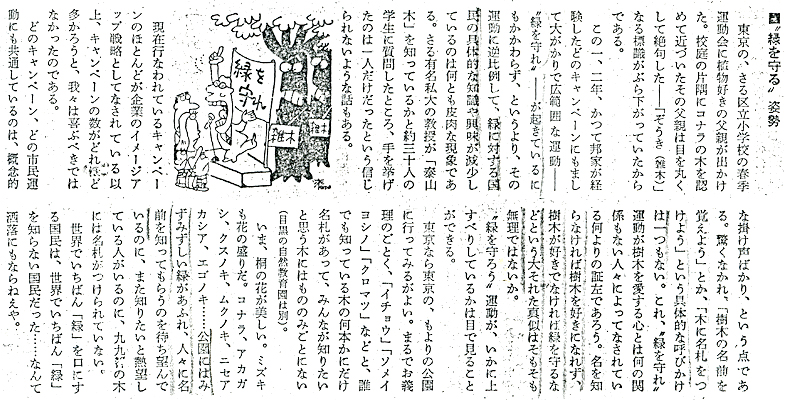 〝緑を守る〟姿勢
東京の、さる区立小学校の春季
運動会に植物好きの父親が出かけ
た。校庭の片隅にコナラの木を認
めて近づいたその父親は目を丸く
して絶句した――「ぞうき(雑木)」
なる標識がぶら下がっていたから
である。
この一、二年、かつて邦家が経
験したどのキャンペーンにもまし
て大がかりで広範囲な運動――
〝緑を守れ〟――が起きているに
もかかわらず、というより、その
運動に逆比例して、緑に対する国
民の具体的な知識や興味が減少し
ているのは何とも皮肉な現象であ
る。さる有名私大の教授が「泰山
木」を知っているかと約三十人の
学生に質問したところ、手を挙げ
たのは一人だけだったという信じ
られないような話もある。
緑を守れ
雑木
雑木
現在行なわれているキャンペー
ンのほとんどが企業のイメージア
ップ戦略としてなされている以
上、キャンペーンの数がどれほど
多かろうと、我々は喜ぶべきでは
なかったのである。
どのキャンペーン、どの市民運
動にも共通しているのは、概念的
な掛け声ばかり、という点であ
る。驚くなかれ、「樹木の名前を
覚えよう」とか、「木に名札をつ
けよう」という具体的な呼びかけ
は一つもない。これ、〝緑を守れ〟
運動が樹木を愛する心とは何の関
係もない人々によってなされてい
る何よりの証左であろう。名を知
らなければ樹木を好きになれず、
樹木が好きでなければ緑を守るな
どというだいそれた真似はそもそも
無理ではないか。
〝緑を守ろう〟運動が、いかに上
すべりしているかは目で見ること
ができる。
東京なら東京の、もよりの公園
に行ってみるがよい。まるでお義
理のごとく、「イチョウ」「ソメイ
ヨシノ」「クロマツ」などと、誰
でも知っている木の何本かにだけ
名札があって、みんなが知りたい
と思う木にはもののみごとにない
(目黒の自然教育園は別)。
いま、桐の花が美しい。ミズキ
も花の盛りだ。コナラ、アカガ
シ、クスノキ、ムクノキ、ニセア
カシア、エゴノキ……公園にはみ
ずみずしい緑があふれ、人々に名
前を知ってもらうのを待ち望んで
いるのに、また知りたいと熱望し
ている人がいるのに、九九㌫の木
には名札がつけられていない。
世界でいちばん「緑」を口にす
る国民は、世界でいちばん「緑」
を知らない国民だった……なんて
洒落にもならねえや。